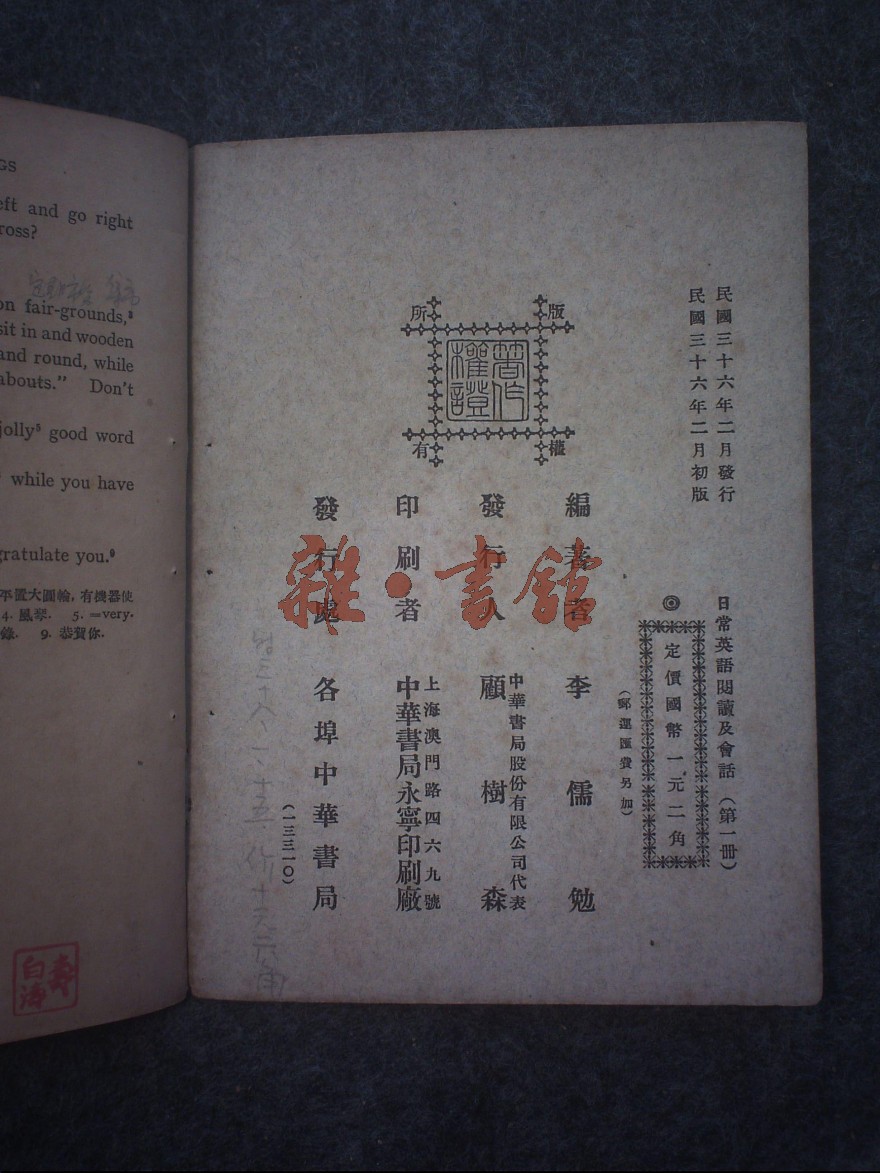 GS
eft and go right
ross?
on fair-grounds,²
sit in and wooden
and round, while
abouts." Don't
jolly⁵ good word
while you have
gratulate you.⁹
平置大圓輪，有機器使
4. 風琴. 5. =very.
錄. 9. 恭賀你.
壽白濤
民國三十六年二月發行
民國三十六年二月初版
日常英語閱讀及會話（第一冊）
◎定價國幣一元二角
（郵運匯費另加）
版權所有
著作權證
編著者 李儒勉
發行人 中華書局股份有限公司代表
顧樹森
印刷者 上海澳門路四六九號
中華書局永寧印刷廠
發行處 各埠中華書局
（一三三一〇）
雜·書館